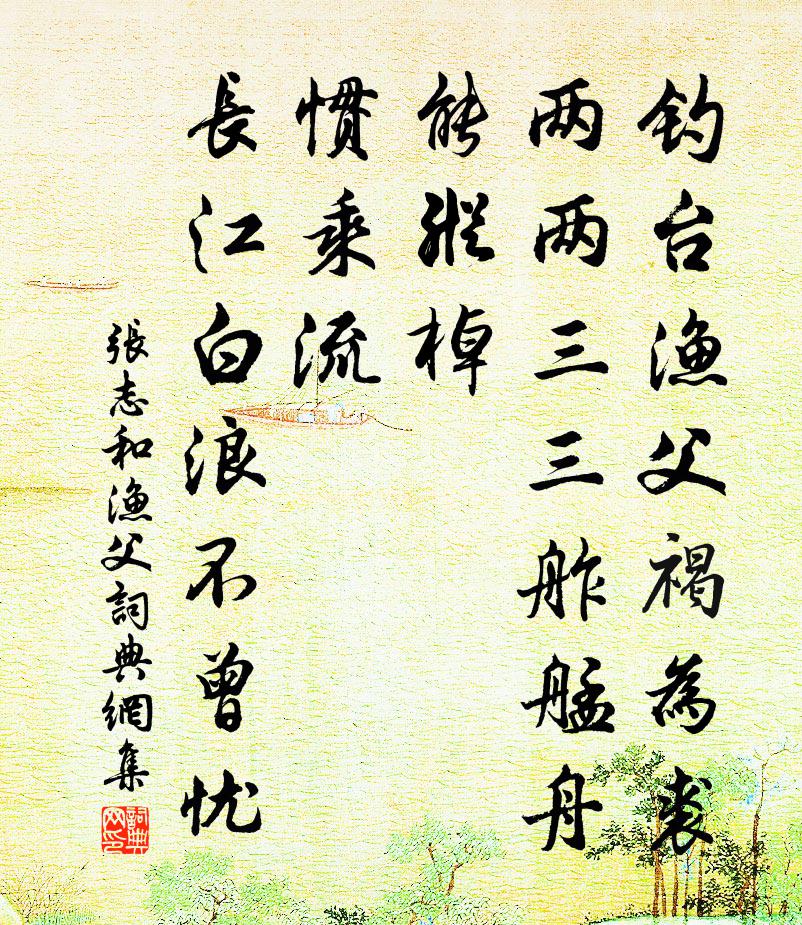 钓台渔父褐為裘
两两三三舴艋舟
能縱棹
慣乘流
長江白浪不曾忧
張志和渔父詞典網集
詞典网印